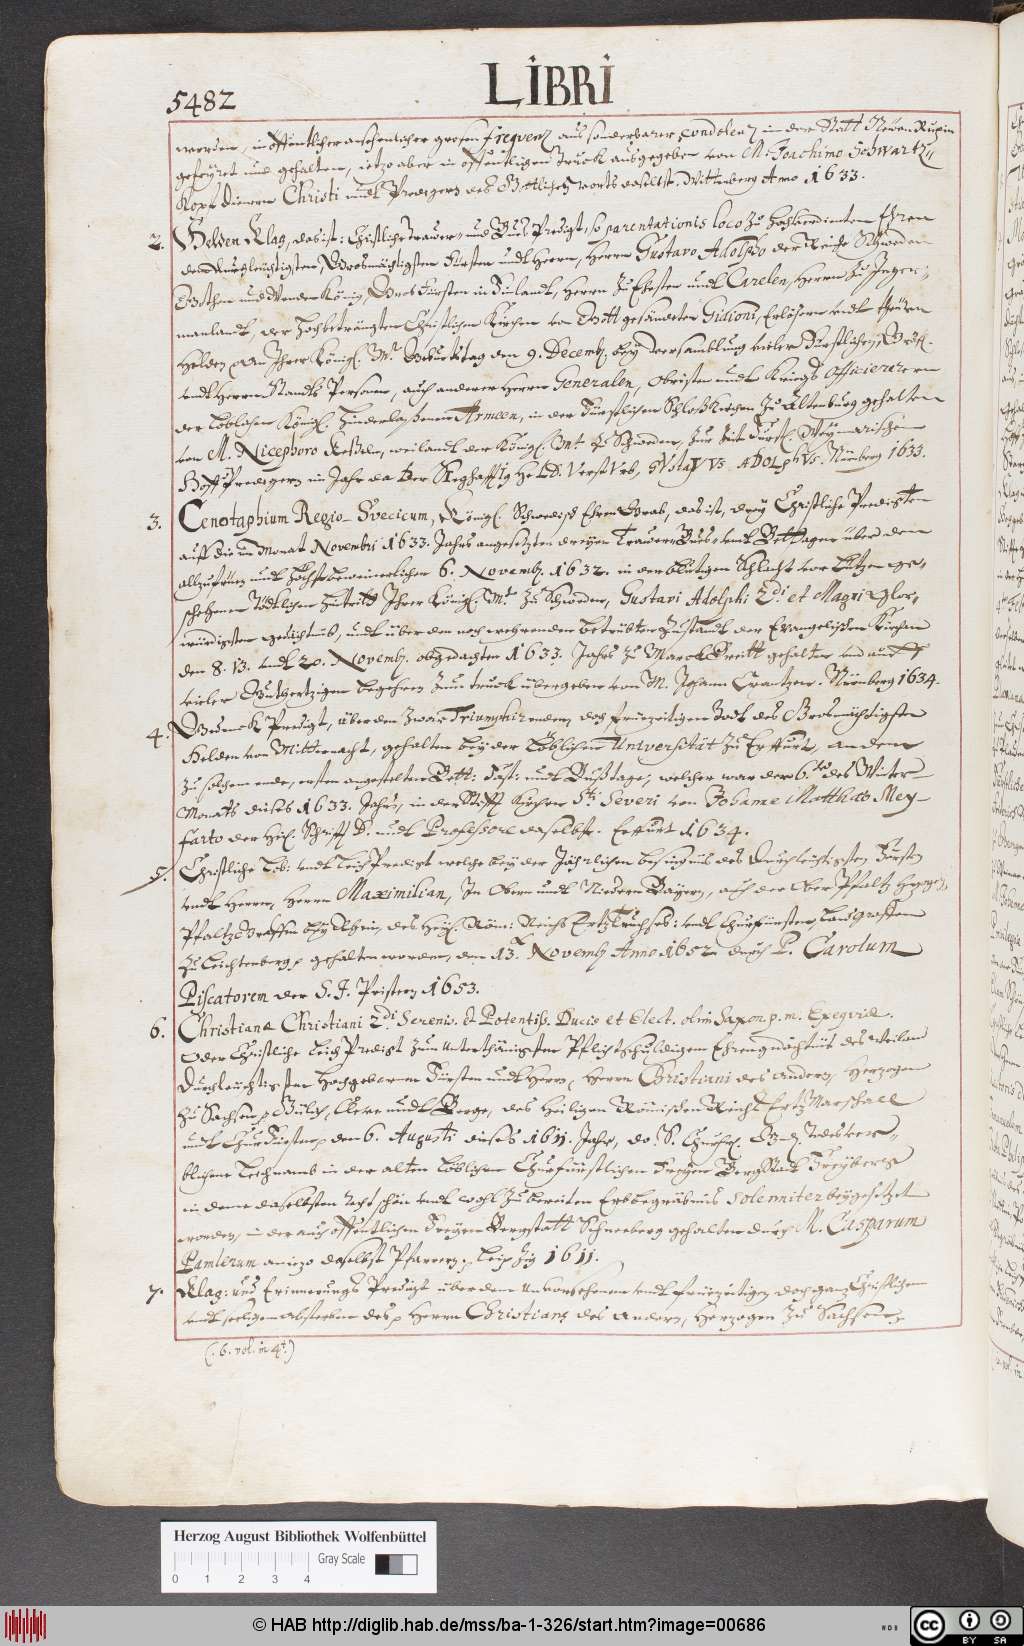 5482
LIBRI
werden, in öffentlicher ansehnlicher grosen frequenz aus sonderbarer condolenz in der Statt Neuen Rupin
gefeÿret und gehalten, ietzo aber in öffentligen Truck ausgegeben von M. Joachimo Schwartz=
Kopf dienern Christi undt Predigern des Göttlichen worts daselbst. Wittenberg Anno 1633.
2. Helden Klag, das ist: Christliche Trawer= und Bus Predigt, so parentationis loco zu Ehren
dem Durchleuchtigsten, Grosmächtigsten Fürsten undt Herrn, Herrn Gustavo Adolpho der Reiche Schweden
Gothen und Wenden König, Gros Fürsten in Finlandt, Herrn zu Ehesten undt Carelen, Herrn zu Inger=
manlandt, der Hochbetrangten Christlichen Kirchen von Gott gesändeten Gideoni, Erlösern undt theüren
Helden, An Ihrer Königl. Mt. Geburtstag den 9. Decemb. beÿ versamblung vieler Fürstlichen,
undt Herrn Standts Personen, auch anderer Herrn Generalen, Obristen undt Kriegs Officierern
der Löblichen Königl. hinderlaßenen Armeen, in der Fürstlichen Schloß Kirchen zu Altenburg gehalten
von M. Nicephoro Keßeln, weilandt der Königl. Mt. zu Schweden, zur Zeit Fürstl. Weÿmarischen
Hoff Predigern im Jahr da Der SIeghaffTIg HeLD. VerstVrb, gVstaVVs ADoLphVs. Nürnberg 1633.
3. Cenotaphium Regio-Svecicum, Königl. Schwedisch Ehren Grab, das ist, dreÿ Christliche Predigten
auff die im Monat Novembri 1633. Jahrs angesetzten dreÿen Trawer Bus= undt Bett Tagen über dem
allzufrüen undt höchst beweinerlichen 6. Novemb. 1632. in der blutigen Schlacht vor Lützen ge=
schehenen Tödtlichen hintritt Ihrer Königl. Mt. zu Schweden, Gustavi Adolphi 2di et Magni glor=
würdigsten gedächtnüs, undt über den noch wehrenden betrübten Zustandt der Evangelischen Kirchen
den 8. 13. undt 20. Novemb. obgedachten 1633. Jahrs zu Marck Breitt gehalten und auff
vieler Guthertzigen begehren zum truck übergeben von M. Johann Crantzen. Nürnberg 1634.
4. Predigt, über den zwar Triumphirenden, doch früezeitigen Todt des Grosmächtigsten
Helden von Mitternacht, gehalten beÿ der Löblichen Universität zu Erffurt, an dem
zu solchem ende, ersten angestelten Bett: Fast: undt Bußtage, welcher war der 6. des Winter
Monats dieses 1633. Jahrs, in der Stifft Kirchen Sti Severi von Johanne Matthæo Meÿ=
farto der Heil. Schrifft D. undt Professore daselbst. Erffurt 1634.
5. Christliche Lob: undt Leich Predigt welche beÿ der Jährlichen besingnüs des Durchleichtigsten Fürsten
undt Herrn, Herrn Maximilian, In Obern undt Niedern Bayern, auch der Ober Pfaltz Hertzogen,
Pfaltzgraffen beÿ Rhein, des Heÿl. Röm: Reichs Ertztruchses: undt Churfürsten, Landgraffen
zu Leichtenberg gehalten worden, den 13. Novemb Anno 1652 durch P. Carolum
Piscatorem der S. J. Pristern 1653.
6. Christianæ Christiani 2di Sereniss. et Potentiss. Ducis et Elect. olim Saxon. p. m. Exeqviæ.
Oder Christliche Leich Predigt zum unterthänigsten Pflichtschuldigen Ehrengedächtnüs des Weilandt
Durchleuchtigsten Hochgebornen Fürsten undt Herrn, Herrn Christiani des Andern, Herzogen
zu Sachsen, Gülich, Cleve undt Berge, des Heiligen Römischen Reichs Ertz Marschall
undt Churfürsten, den 6. Augusti dieses 1611. Jahr, da S. Churfl. Gnd. verbl=
blichene Leichnamb in der alten Löblichen Churfürstlichen Freÿen Berg Stadt Freÿberg
in dem daselbsten Recht schön undt wohl zubereiten Erbbegräbnüs Solenniter beÿgesetzet
worden, in der auch öffentlichen Freÿen Bergstatt Schneeberg gehalten durch M. Casparum
Pamlerum an iezo daselbst Pfarrern. Leipzig 1611.
7. Klag: und Erinnerungs Predigt über dem unvorsehenen undt früezeitigen doch gantz Christlichen
undt seeligen absterben des Herrn Christians des Andern, Herzogen zu Sachsen
(. 6. vol. in 4t.)
Herzog August Bibliothek Wolfenbüttel
Gray Scale
0 1 2 3 4
© HAB http://diglib.hab.de/mss/ba-1-326/start.htm?image=00686
cc BY SA